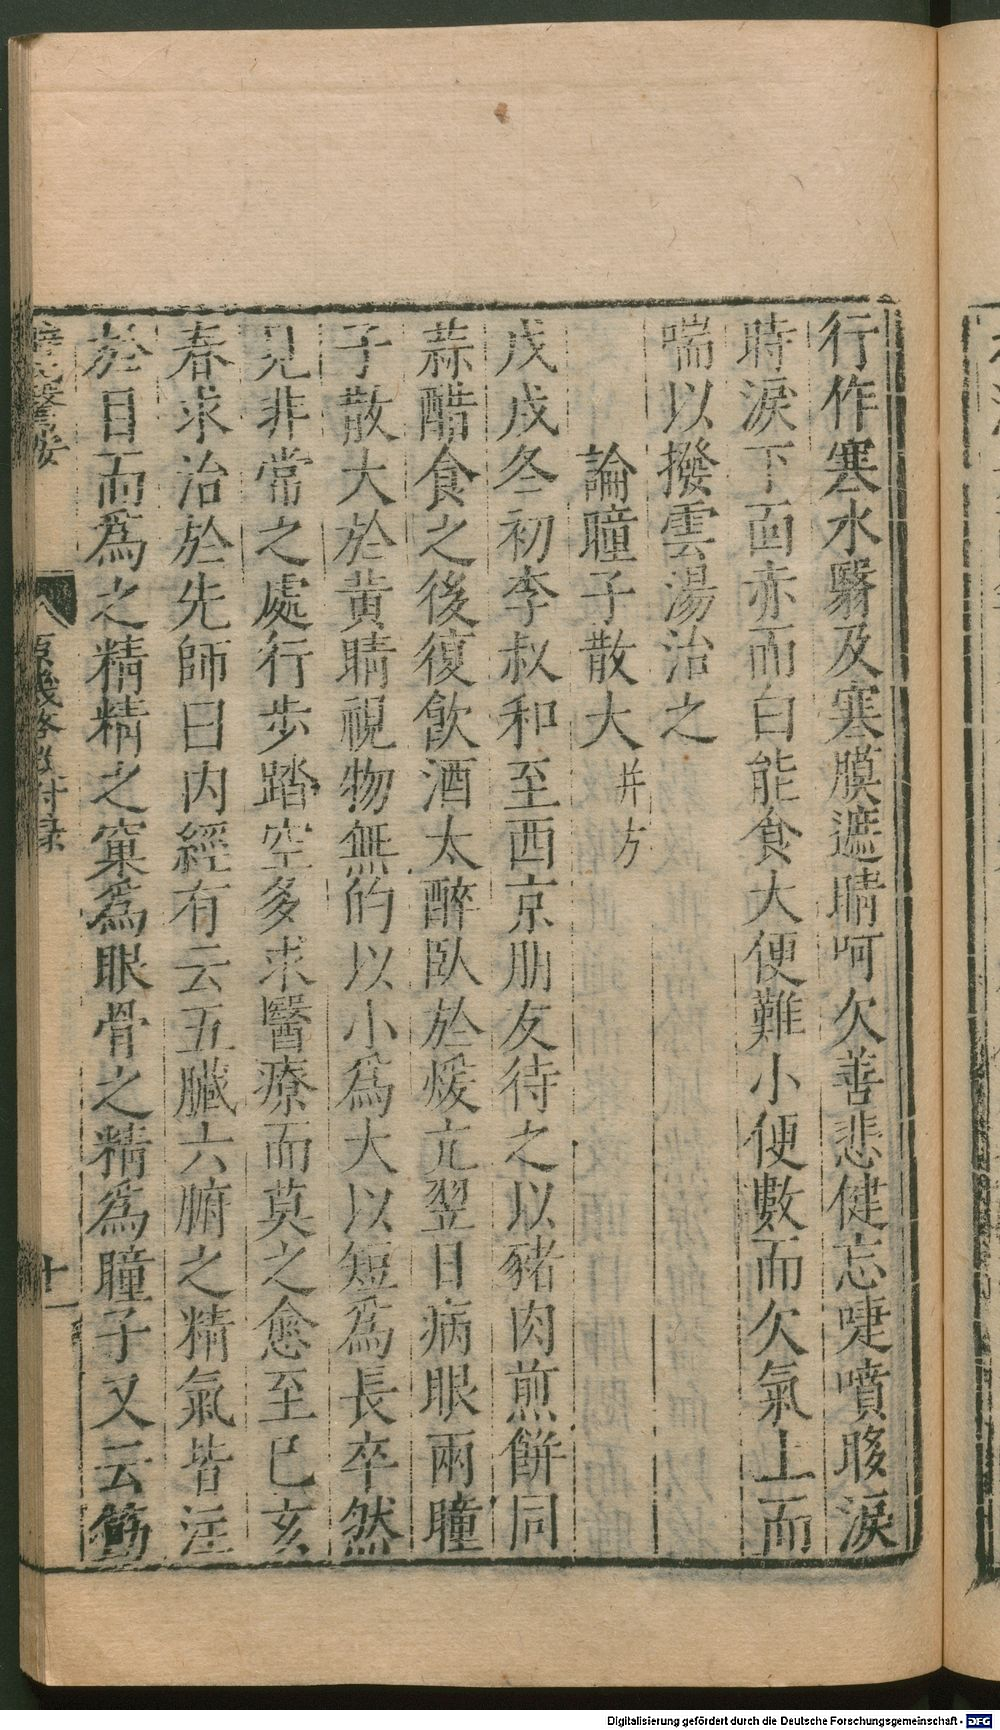 行作寒水翳及寒膜遮睛呵欠善悲健忘啑噴眵淚
時淚下面赤而白能食大便難小便數而欠氣上而
喘以撥雲湯治之
論瞳子散大 并方
戊戌冬初李叔和至西京朋友待之以豬肉煎餅同
蒜醋食之後復飲酒太醉臥於煖亢翌日病眼兩瞳
子散大於黃睛視物無的以小為大以短為長卒然
見非常之處行步踏空多求醫療而莫之愈至巳玄
春求治於先師曰內經有云五臟六腑之精氣皆注
於目而為之精精之窠為眼骨之精為瞳子又云筋
原機啓微附錄
十一
Digitalisierung gefördert durch die Deutsche Forschungsgemeinschaft - DFG